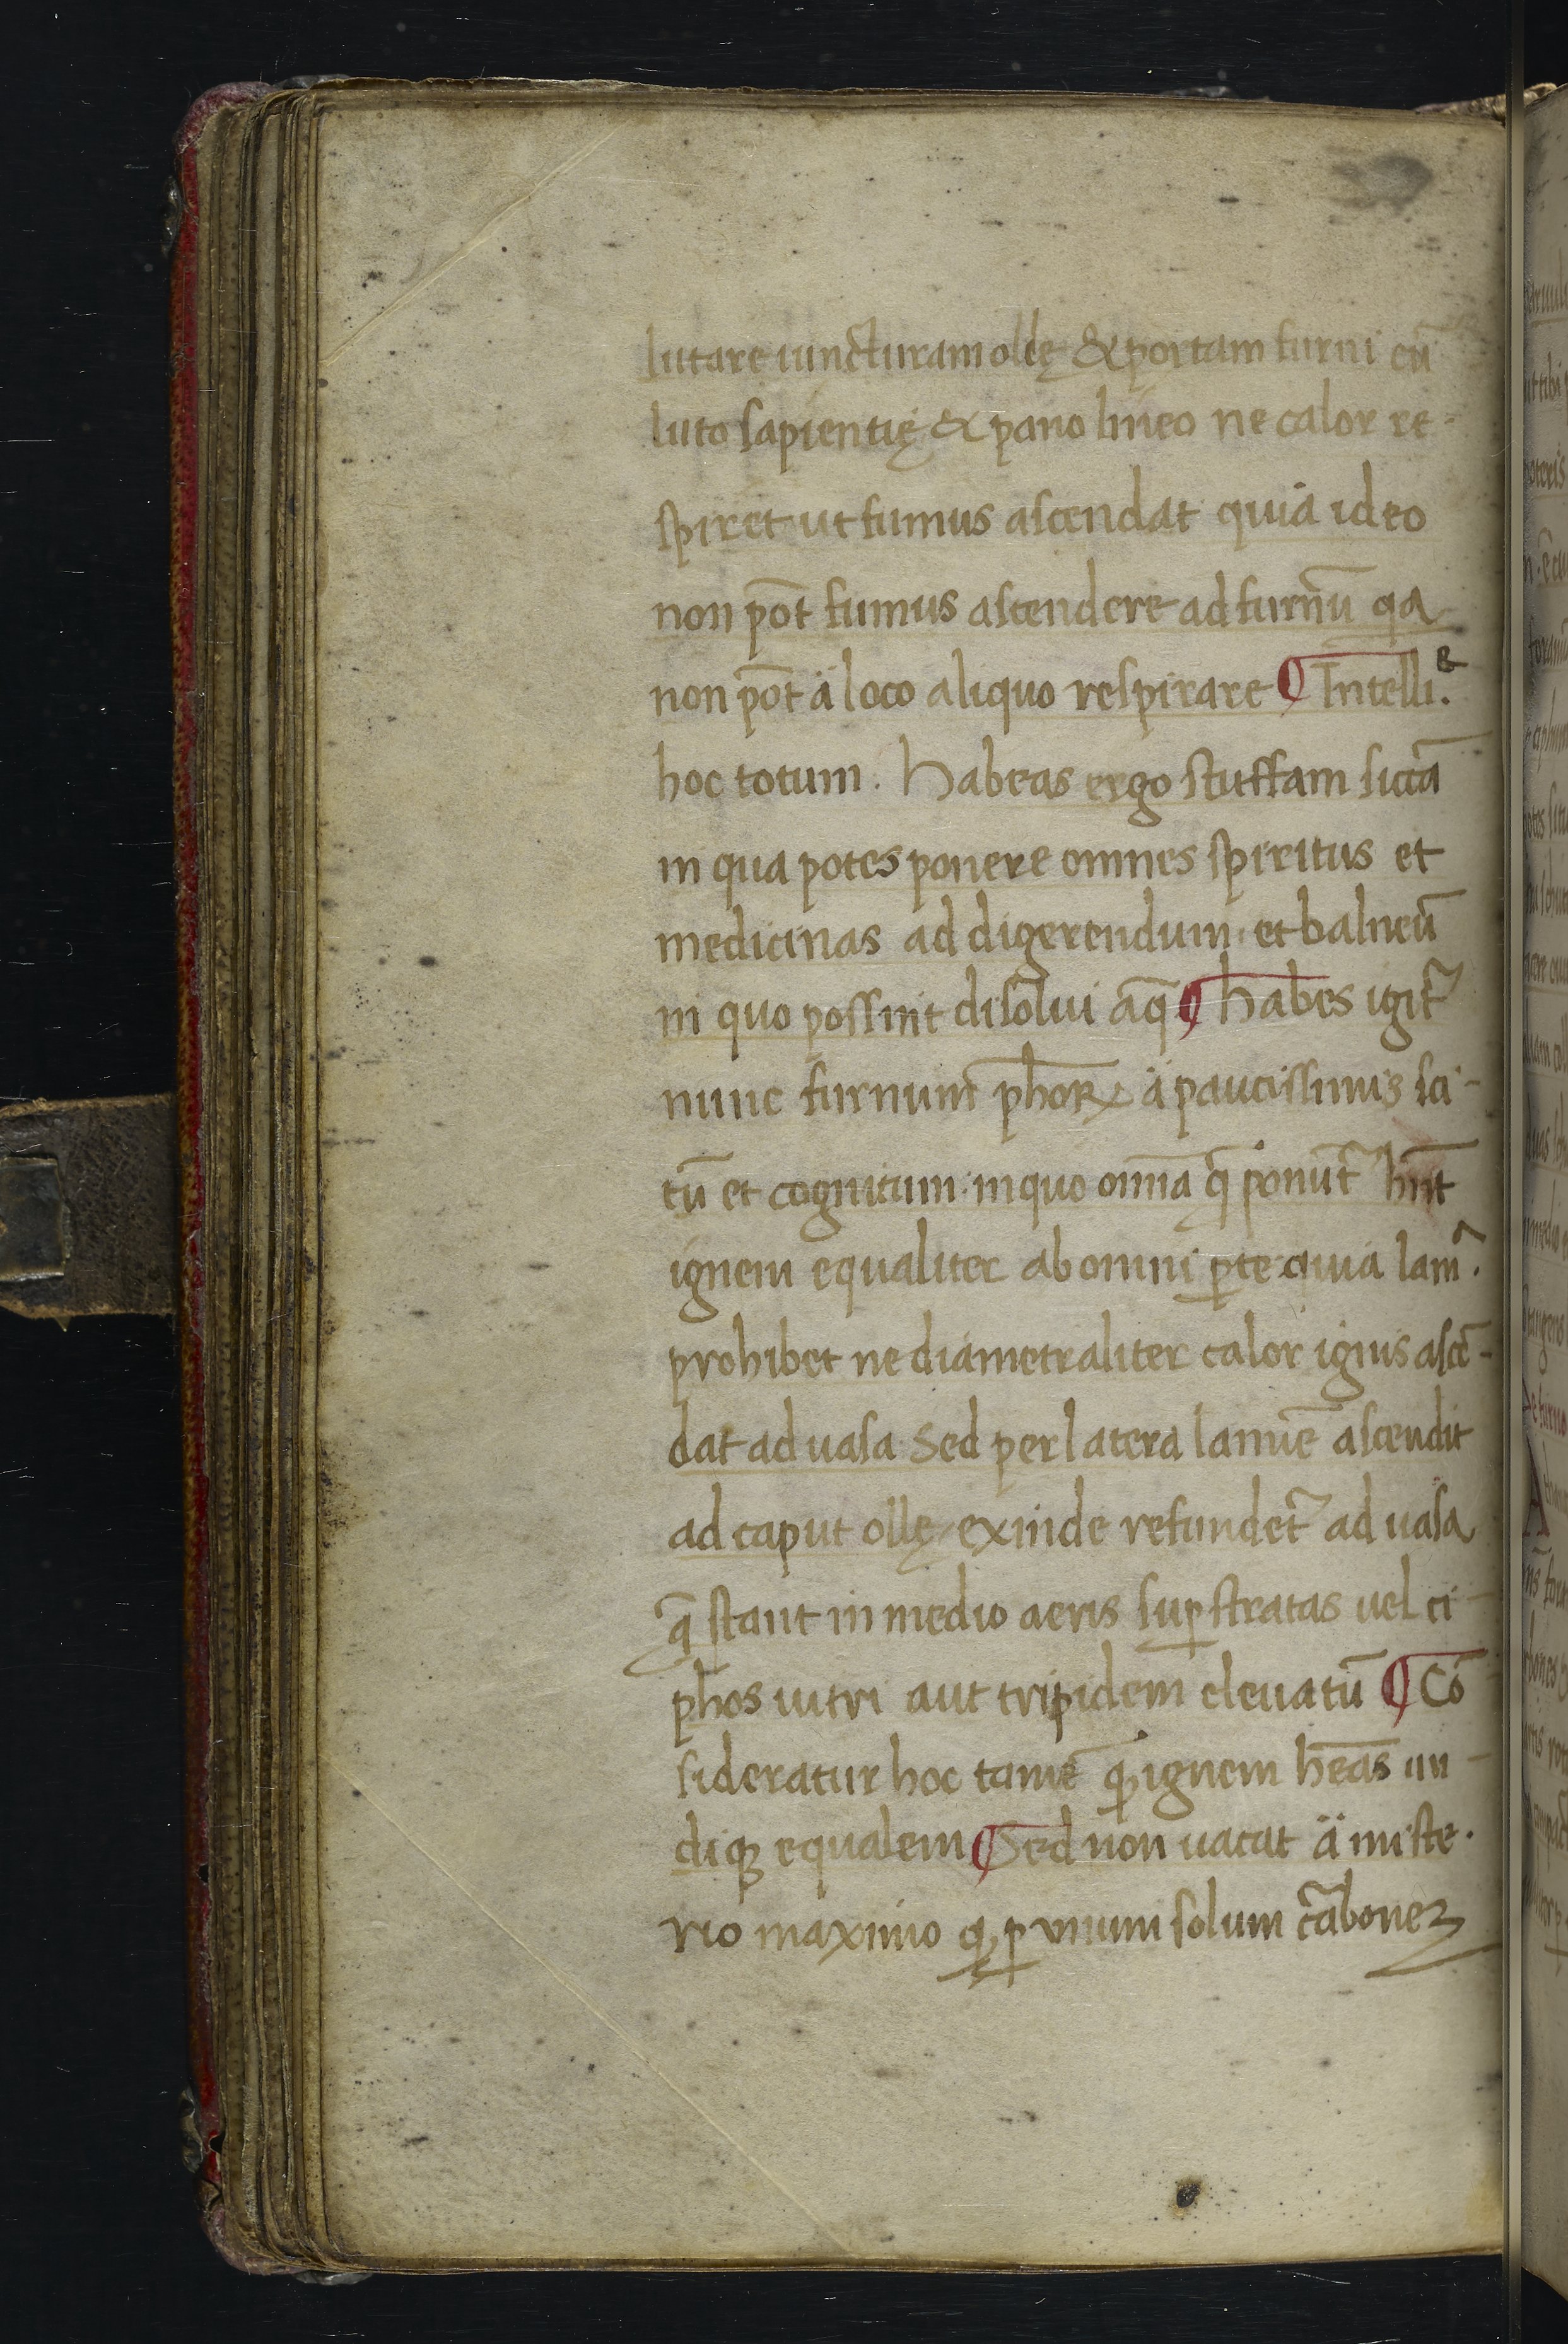 lutare iuncturam ollę & portam furni cū
luto sapientię & pano lineo ne calor re-
spiret ut fumus ascendat quia ideo
non pōt fumus ascendere ad furnū qa
non pōt à loco aliquo respirare ¶ Intelli.&
hoc totum. Habeas ergo stuffam siccā
in qua potes ponere omnes spiritus et
medicinas ad digerendum et balneū
in quo possint disolui aq̄ ¶ habes igit᷑
nunc furnum ph̄oꝝ à paucissimis sci-
tū et cognitum in quo omīa q̄ ponūt᷑ hn̄t
ignem equaliter ab omni ꝑte quia lam̄.
prohibet ne diametraliter calor ignis ascē-
dat ad uasa Sed per latera lamīe ascendit
ad caput ollę exinde refundet᷑ ad uasa
q̄ stant in medio aeris suꝑ stratas uel ci-
phos uitri aut tripidem eleuatū ¶ Cō
sideratur hoc tamē ꝙ ignem hēas un-
diqꝫ equalem ¶ Sed non uacat à miste-
rio maximo ꝙ ꝑ unum solum c̄aboneꝫ